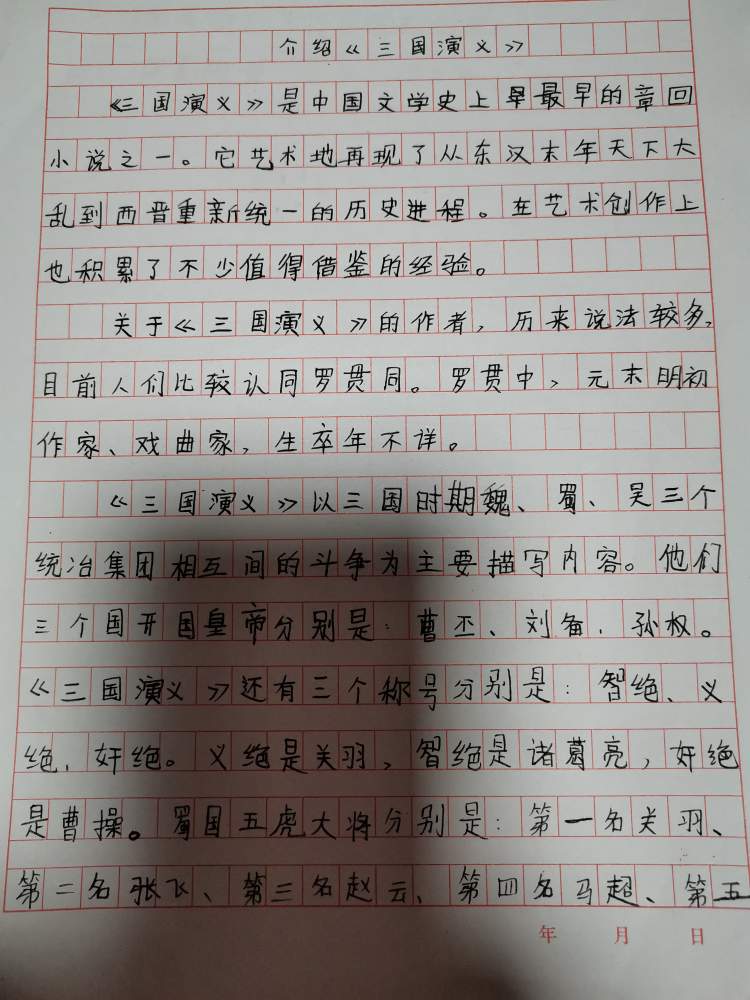 介绍《三国演义》
《三国演义》是中国文学史上早最早的章回
小说之一。它艺术地再现了从东汉末年天下大
乱到西晋重新统一的历史进程。在艺术创作上
也积累了不少值得借鉴的经验。
关于《三国演义》的作者，历来说法较多，
目前人们比较认同罗贯同。罗贯中，元末明初
作家、戏曲家，生卒年不详。
《三国演义》以三国时期魏、蜀、吴三个
统治集团相互间的斗争为主要描写内容。他们
三个国开国皇帝分别是：曹丕、刘备、孙权。
《三国演义》还有三个称号分别是：智绝、义
绝、奸绝。义绝是关羽，智绝是诸葛亮，奸绝
是曹操。蜀国五虎大将分别是：第一名关羽、
第二名张飞、第三名赵云、第四名马超、第五
年 月 日